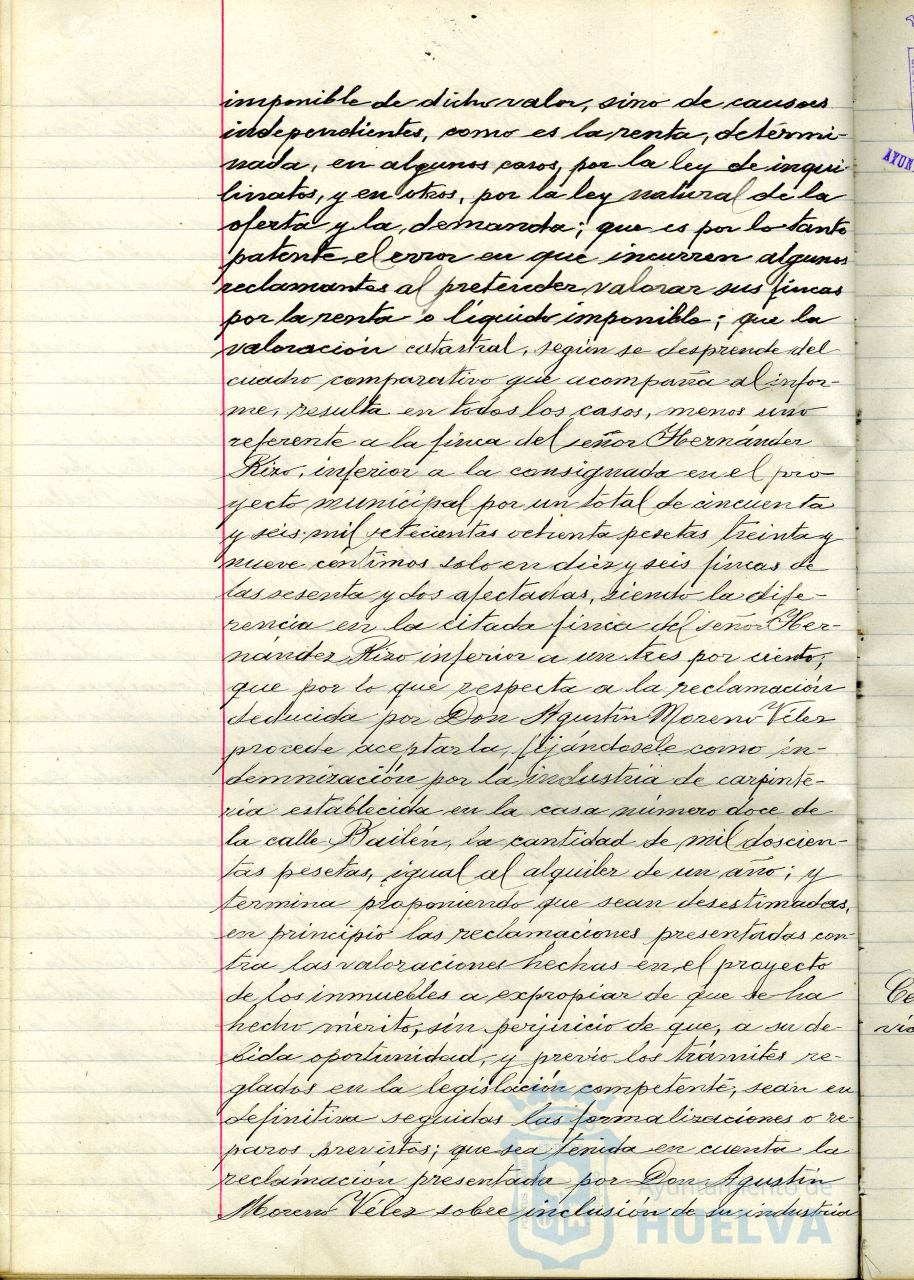 imponible de dicho valor, sino de causas
independientes, como es la renta, determi-
nada, en algunos casos, por la ley de inqui-
linatos, y en otros, por la ley natural de la
oferta y la demanda; que es por lo tanto
patente el error en que incurren algunos
reclamantes al pretender valorar sus fincas
por la renta o líquido imponible; que la
valoración catastral, según se desprende del
cuadro comparativo que acompaña al infor-
me, resulta en todos los casos, menos uno
referente a la finca del señor Hernández
Rizo, inferior a la consignada en el pro-
yecto municipal por un total de cincuenta
y seis mil setecientas ochenta pesetas treinta y
nueve céntimos solo en diez y seis fincas de
las sesenta y dos afectadas, siendo la dife-
rencia en la citada finca del señor Her-
nández Rizo inferior a un tres por ciento;
que por lo que respecta a la reclamación
deducida por Don Agustín Moreno Vélez
procede aceptarla, fijándosele como in-
demnización por la industria de carpinte-
ría establecida en la casa número doce de
la calle Bailén, la cantidad de mil doscien-
tas pesetas, igual al alquiler de un año; y
termina proponiendo que sean desestimadas,
en principio las reclamaciones presentadas con-
tra las valoraciones hechas en el proyecto
de los inmuebles a expropiar de que se ha
hecho mérito, sin perjuicio de que, a su de-
bida oportunidad, y previo los trámites re-
glados en la legislación competente, sean en
definitiva seguidas las formalizaciones o re-
paros previstos; que sea tenida en cuenta la
reclamación presentada por Don Agustín
Moreno Vélez sobre inclusión de su industria
Ayuntamiento de
HUELVA
AYUN
Ce
vic